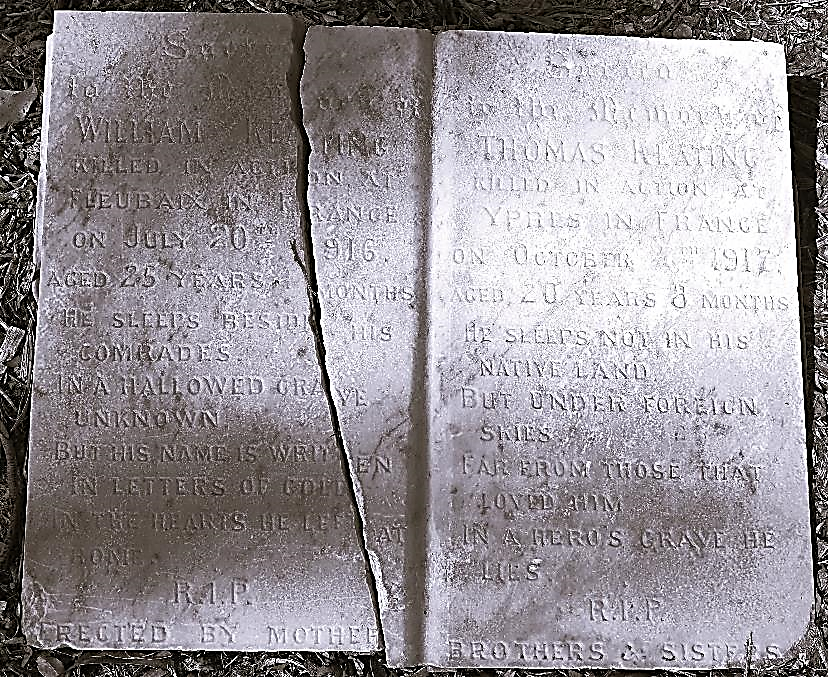 Sacred
to the Memory of
WILLIAM KEATING
KILLED IN ACTION AT
FLEUBAIX IN FRANCE
ON JULY 20TH 1916.
AGED 25 YEARS MONTHS
HE SLEEPS BESIDE HIS
COMRADES.
IN A HALLOWED GRAVE
UNKNOWN.
BUT HIS NAME IS WRITTEN
IN LETTERS OF GOLD
IN THE HEARTS HE LEFT AT
HOME.
R.I.P.
ERECTED BY MOTHER
Sacred
to the Memory of
THOMAS KEATING
KILLED IN ACTION AT
YPRES IN FRANCE
ON OCTOBER 1917.
AGED 20 YEARS 8 MONTHS
HE SLEEPS NOT IN HIS
NATIVE LAND.
BUT UNDER FOREIGN
SKIES
FAR FROM THOSE THAT
LOVED HIM
IN A HERO'S GRAVE HE
LIES.
R.I.P.
BROTHERS & SISTERS